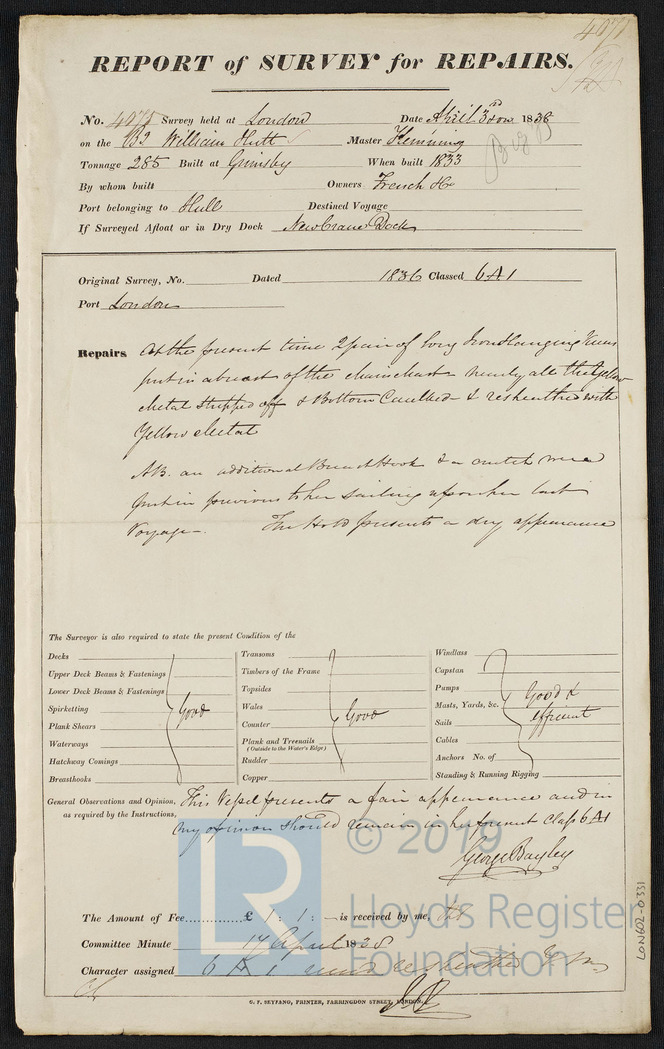 4075
REPORT of SURVEY for REPAIRS.
No. 4075 Survey held at London Date April 3rd 1838
on the Bg William Hutt Master Fleming
Tonnage 285 Built at Grimsby When built 1833
By whom built Owners French & Co
Port belonging to Hull Destined Voyage
If Surveyed Afloat or in Dry Dock New Crane Dock
Original Survey, No. Dated 1836 Classed 6 A 1
Port London
Repairs At the present time 2 pair of long Iron Hanging Knees
put in abreast of the Main Mast nearly all the Yellow
Metal stripped off & Bottom Caulked & resheathed with
Yellow Metal
NB. an additional Breast Hook & a crutch were
put in previous to her sailing upon her last
Voyage. The Hold presents a dry appearance
The Surveyor is also required to state the present Condition of the
Decks
Upper Deck Beams & Fastenings
Lower Deck Beams & Fastenings
Spirketting
Plank Shears
Waterways
Hatchway Comings
Breasthooks
Good
Transoms
Timbers of the Frame
Topsides
Wales
Counter
Plank and Treenails
(Outside to the Water's Edge)
Rudder
Copper
Good
Windlass
Capstan
Pumps
Masts, Yards, &c.
Sails
Cables
Anchors No. of
Standing & Running Rigging
Good &
efficient
General Observations and Opinion, This Vessel presents a fair appearance and in
as required by the Instructions, my opinion should remain in her present Class 6 A 1
George Bayley
© 2019
LR
Lloyd's Register
Foundation
The Amount of Fee............... £ 1 : 1 : – is received by me,
Committee Minute 17 April 1838
Character assigned 6 A 1
G. F. SEYFANG, PRINTER, FARRINGDON STREET, LONDON.
LON602-0331